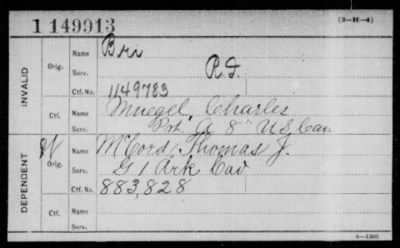 1 149913
(3-H-4)
INVALID
Orig.
Name
Serv.
R.I.
Ctf. No.
1149783
Ctf.
Name
Muegel, Charles
Serv.
Pvt. A 8" U S Cav.
DEPENDENT
W
Orig.
Name
McCord, Thomas J.
Serv.
G 1 Ark Cav
Ctf. No.
883,828
Ctf.
Name
Serv.